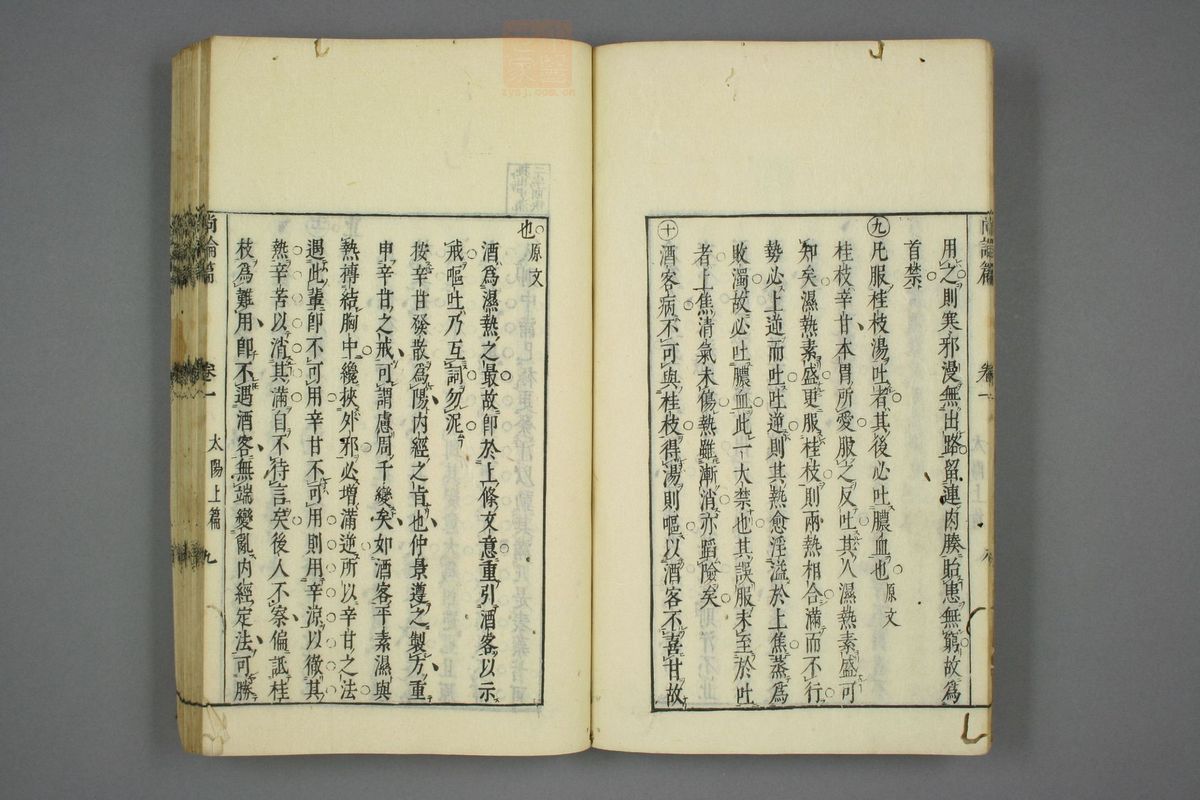 用之則寒邪漫無出路留連肉腠貽患無窮故爲
首禁
九 凡服桂枝湯吐者其後必吐膿血也 原文
桂枝辛甘本胃所愛服之反吐其人濕熱素盛可
知矣濕熱素盛更服桂枝則兩熱相合滿而不行
勢必上逆而吐吐逆則其熱愈淫溢於上焦蒸爲
敗濁故必吐膿血此一大禁也其誤服未至於吐
者上焦清氣未傷熱雖漸消亦蹈險矣
十 酒客病不可與桂枝得湯則嘔以酒客不喜甘故
尚論篇 卷一 太陽上篇 九
也 原文
酒爲濕熱之最故卽於上條文意重引酒客以示
戒嘔吐乃互詞勿泥
按辛甘發散爲陽內經之旨也仲景遵之製方重
申辛甘之戒可謂慮周千變矣如酒客平素濕與
熱摶結胸中纔挾外邪必增滿逆所以辛甘之法
遇此輩卽不可用辛甘不可用則用辛涼以徹其
熱辛苦以消其滿自不待言矣後人不察偏詆桂
枝爲難用卽不遇酒客無端變亂內經定法可勝
尚論篇 卷一 太陽上篇 九
zysj.com.cn